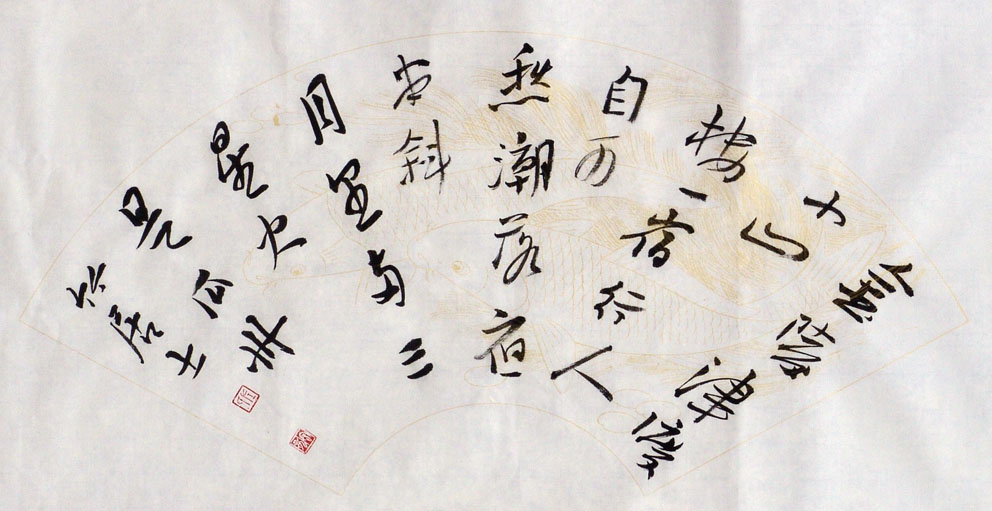 金陵津渡
小山
楼一宿行人
自可
愁潮落夜
江斜
月里两三
星火
是瓜州
居士